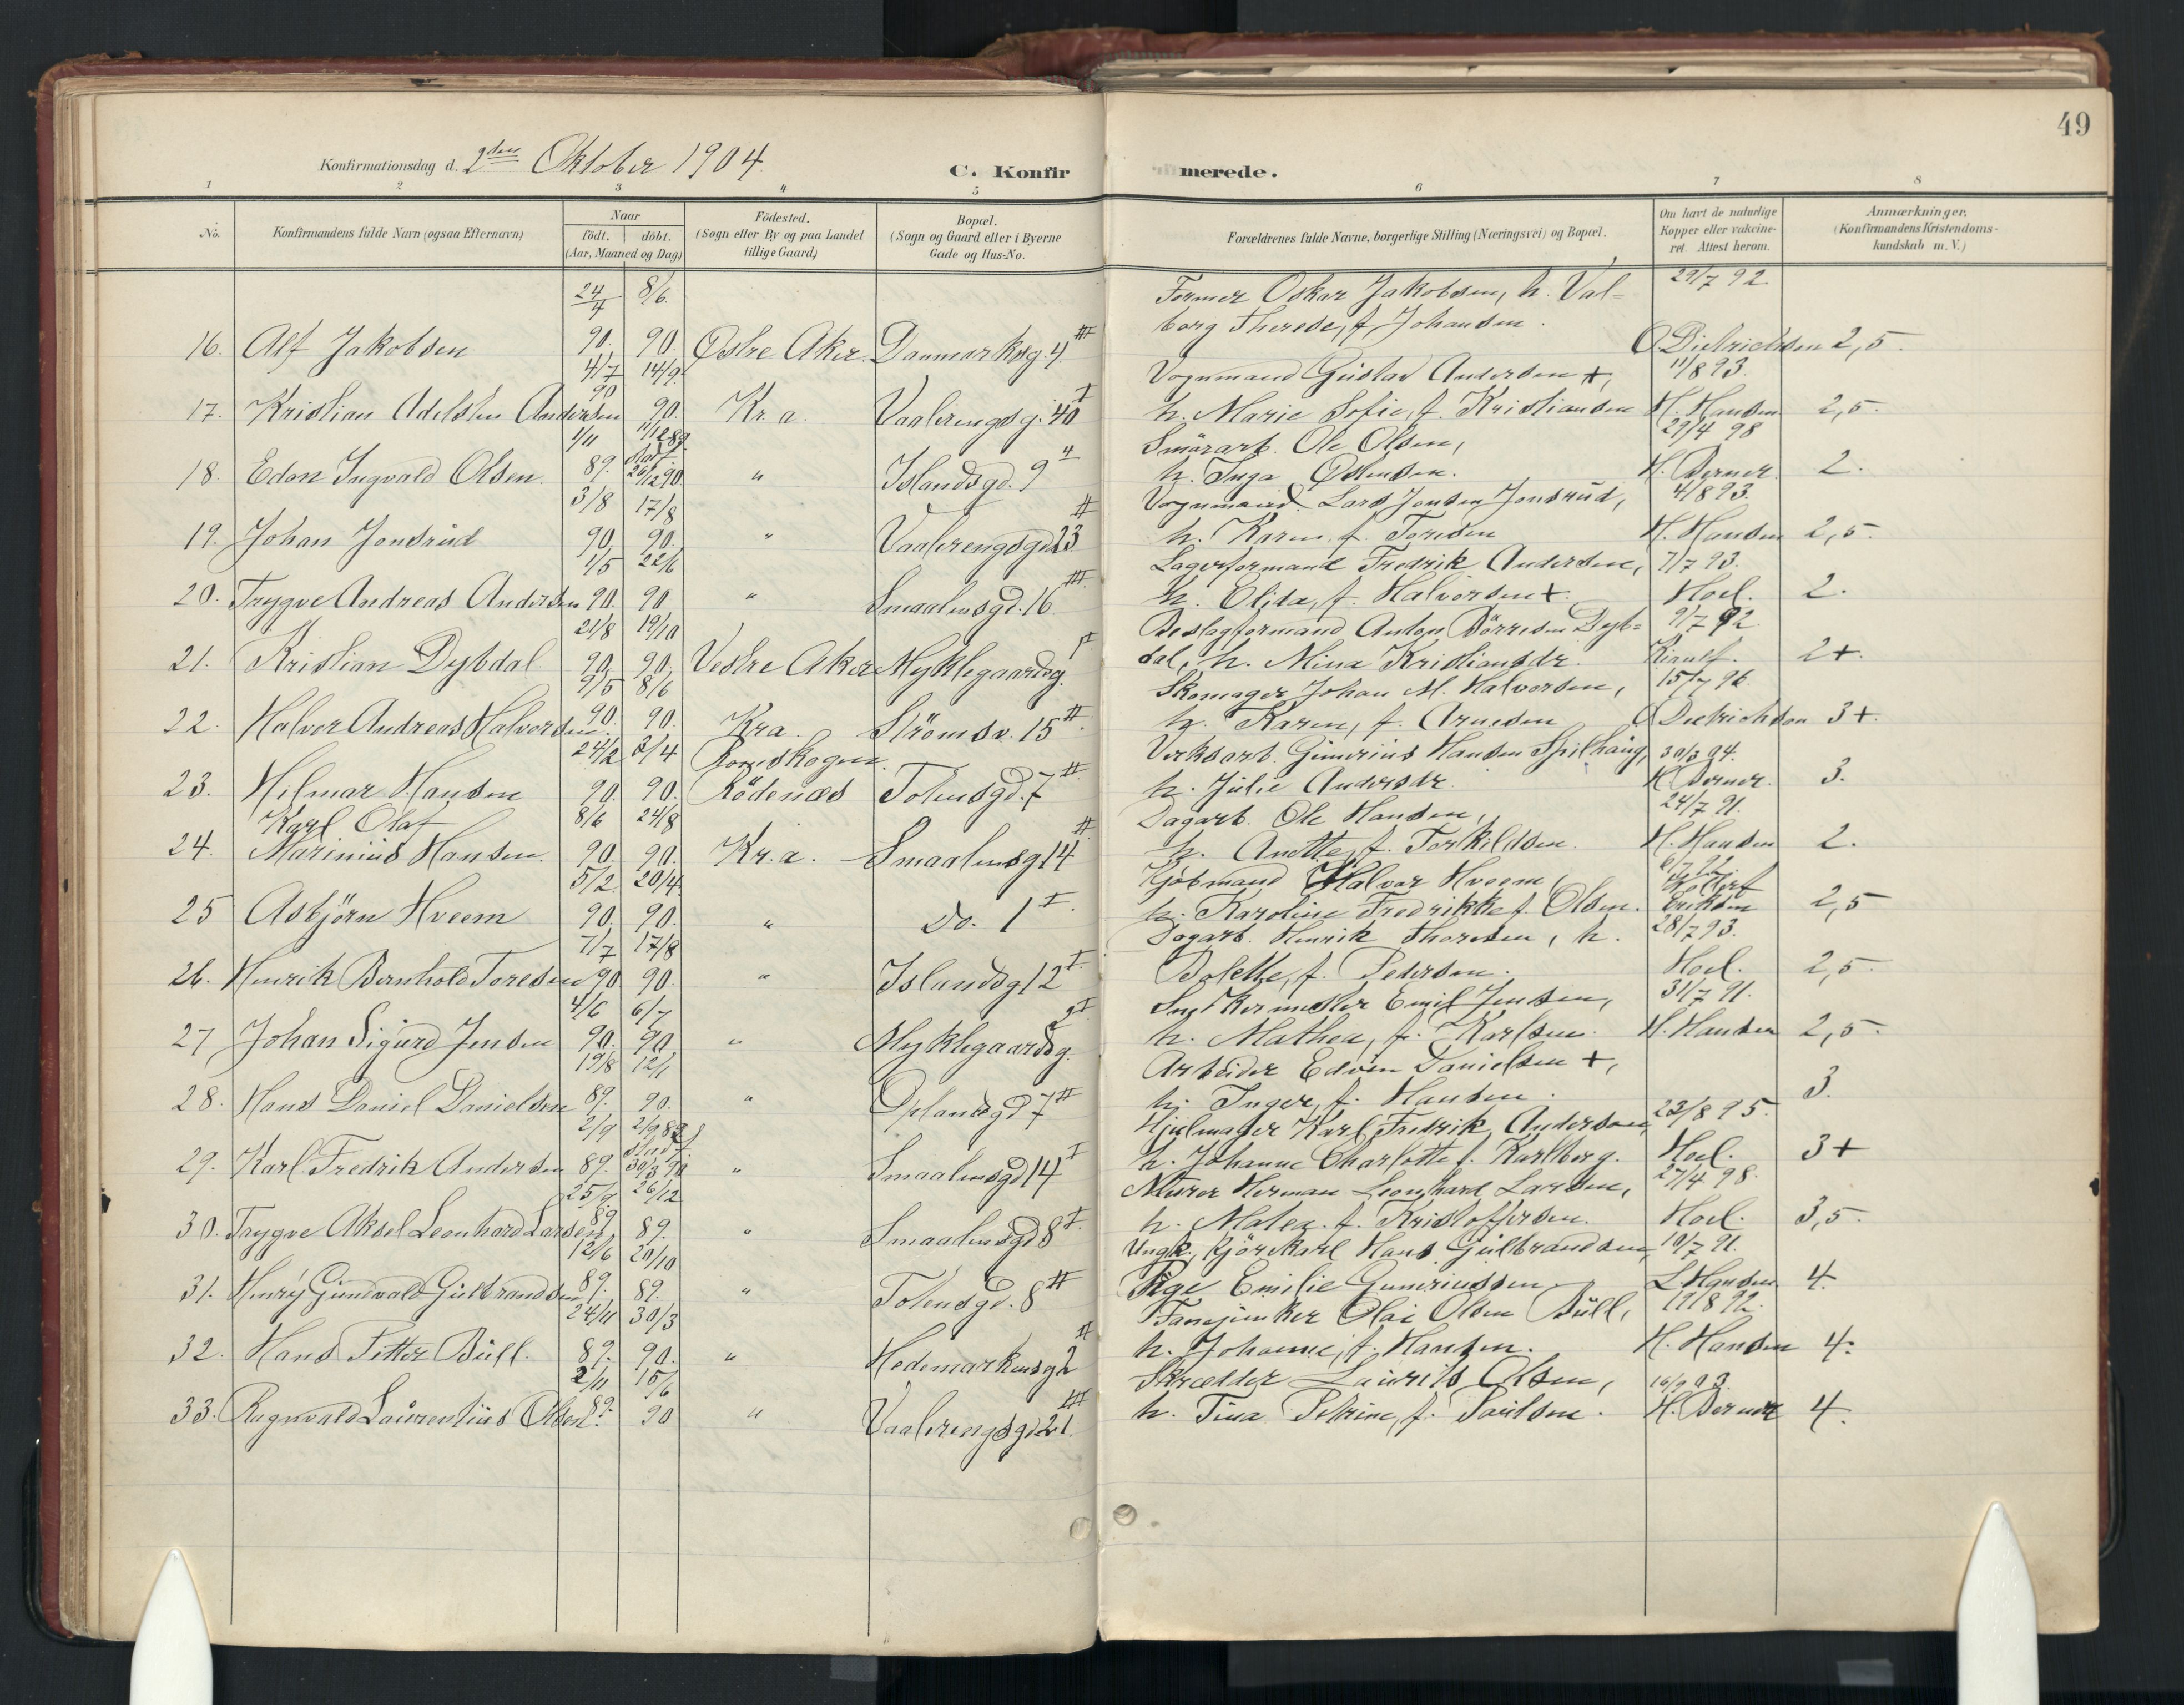 49
Konfirmationsdag d. 2den Oktober 1904.
C. Konfirmerede.
1 2 3 4 5 6 7 8
No. Konfirmandens fulde Navn (ogsaa Efternavn) Naar födt. döbt. (Aar, Maaned og Dag) Födested. (Sogn eller By og paa Landet tillige Gaard) Bopæl. (Sogn og Gaard eller i Byerne Gade og Hus-No. Forældrenes fulde Navne, borgerlige Stilling (Næringsvei) og Bopæl. Om havt de naturlige Kopper eller vaccineret. Attest herom. Anmærkninger. (Konfirmandens Kristendomskundskab m. V.)
24/4 8/6 Former Oskar Jakobsen, h. Val= 29/7 92.
borg Therese, f. Johansen.
16. Alf Jakobsen 90. 90. Östre Aker. Danmarksg. 4 III O Dietrichsen 2,5.
4/7 14/9 Vognmand Gustav Andersen +, 11/8 93.
17. Kristian Adelsten Andersen 90 90. Kr.a. Vaalerengsg. 40 I h. Marie Sofie, f. Kristiansen H. Hansen 2,5.
1/11 11/12 89 Smörarb. Ole Olsen, 29/4 98
18. Edon Ingvald Olsen. 89. stadf. 26/12 90. " Islandsgd. 9 4 h. Inga Östensen. H. Berner. 2.
3/8 17/8 Vognmand Lars Jensen Jonsrud, 4/8 93.
19. Johan Jonsrud 90. 90. " Vaalerengsgd 23 II h. Karen f. Toresen H. Hansen 2,5.
1/5 22/6 Lagerformand Fredrik Andersen, 7/7 93.
20. Trygve Andreas Andersen 90. 90 " Smaalensgd. 16 III h. Elida, f. Halvorsen +. Hoel. 2.
21/8 19/10 Beslagformand Anton Börresen Dyb= 9/7 92
21. Kristian Dybdal 90. 90. Vestre Aker Myklegaardsg. dal, h. Mina Kristiansdr. 2+.
9/5 8/6 Skomager Johan M. Halvorsen, 15/7 96
22. Halvor Andreas Halvorsen 90. 90. Kra. Strömsv. 15 II h. Karen, f. Arnesen O Dietrichson 3+.
24/2 3/4 Verksarb. Gunerius Hansen Spilhaug, 30/3 94.
23. Hilmar Hansen 90. 90. Rømskogen. Rödenæs Totensgd. 7 II h. Julie Andersdr. H Berner. 3.
8/6 24/8 Dagarb. Ole Hansen, 24/7 91.
24. Karl Olaf Marinius Hansen. 90. 90. Kr.a. Smaalensg 14 II h. Anette, f. Torkildsen. H. Hansen 2.
5/2. 20/4. Kjöbmand Halvor Hveem, 6/7 92.
25 Asbjörn Hveem 90. 90. " Do. 1 I. h. Karoline Fredrikke f. Olsen. Eriksen 2,5
7/7 17/8 Dagarb. Henrik Thoresen, h. 28/7 93.
26. Henrik Bernhold Toresen 90 90. " Islandsg 12 I. Bolette, f. Pedersen. Hoel. 2,5.
4/6 6/7 Snekkermester Emil Jensen, 31/7 91.
27 Johan Sigurd Jensen 90. 90 " Myklegaardsg. h. Mathea, f. Karlsen. H. Hansen 2,5.
19/8 12/1 Arbeider Edvin Danielsen +,
28. Hans Daniel Danielsen 89. 90. " Oplandsgd 7 II h. Inger, f. Hansen. 3.
2/9 2/9 89 Hjulmager Karl Fredrik Andersen, 23/8 95.
29. Karl Fredrik Andersen 89. stadf. 30/3 90 " Smaalensgd 14 I h. Johanne Charlotte f. Karlberg. Hoel. 3+
25/9 26/12 Murer Herman Leonhard Larsen, 27/4 98.
30. Trygve Aksel Leonhard Larsen 89 89. " Smaalensgd 8 I. h. Malea. f. Kristoffersen. Hoel. 3,5.
12/6 20/10 Ungk. Kjörekarl Hans Gulbrandsen, 10/7 91.
31. Henry Gundvald Gulbrandsen 89. 89. " Totensgd. 8 II Pige Emilie Guneriussen L. Hansen 4.
24/11 30/3 Fanejunker Olai Olsen Büll, 19/8 92.
32. Hans Petter Büll. 89. 90. " Hedemarkensg 2 II h. Johanne, f. Hansen. H. Hansen 4.
2/11 15/6 Skrædder Laurits Olsen, 16/9 93.
33. Ragnvald Laurentius Olsen. 89. 90 " Vaalerengsgd 21. III h. Tina Petrine, f. Paulsen. H. Berner 4.